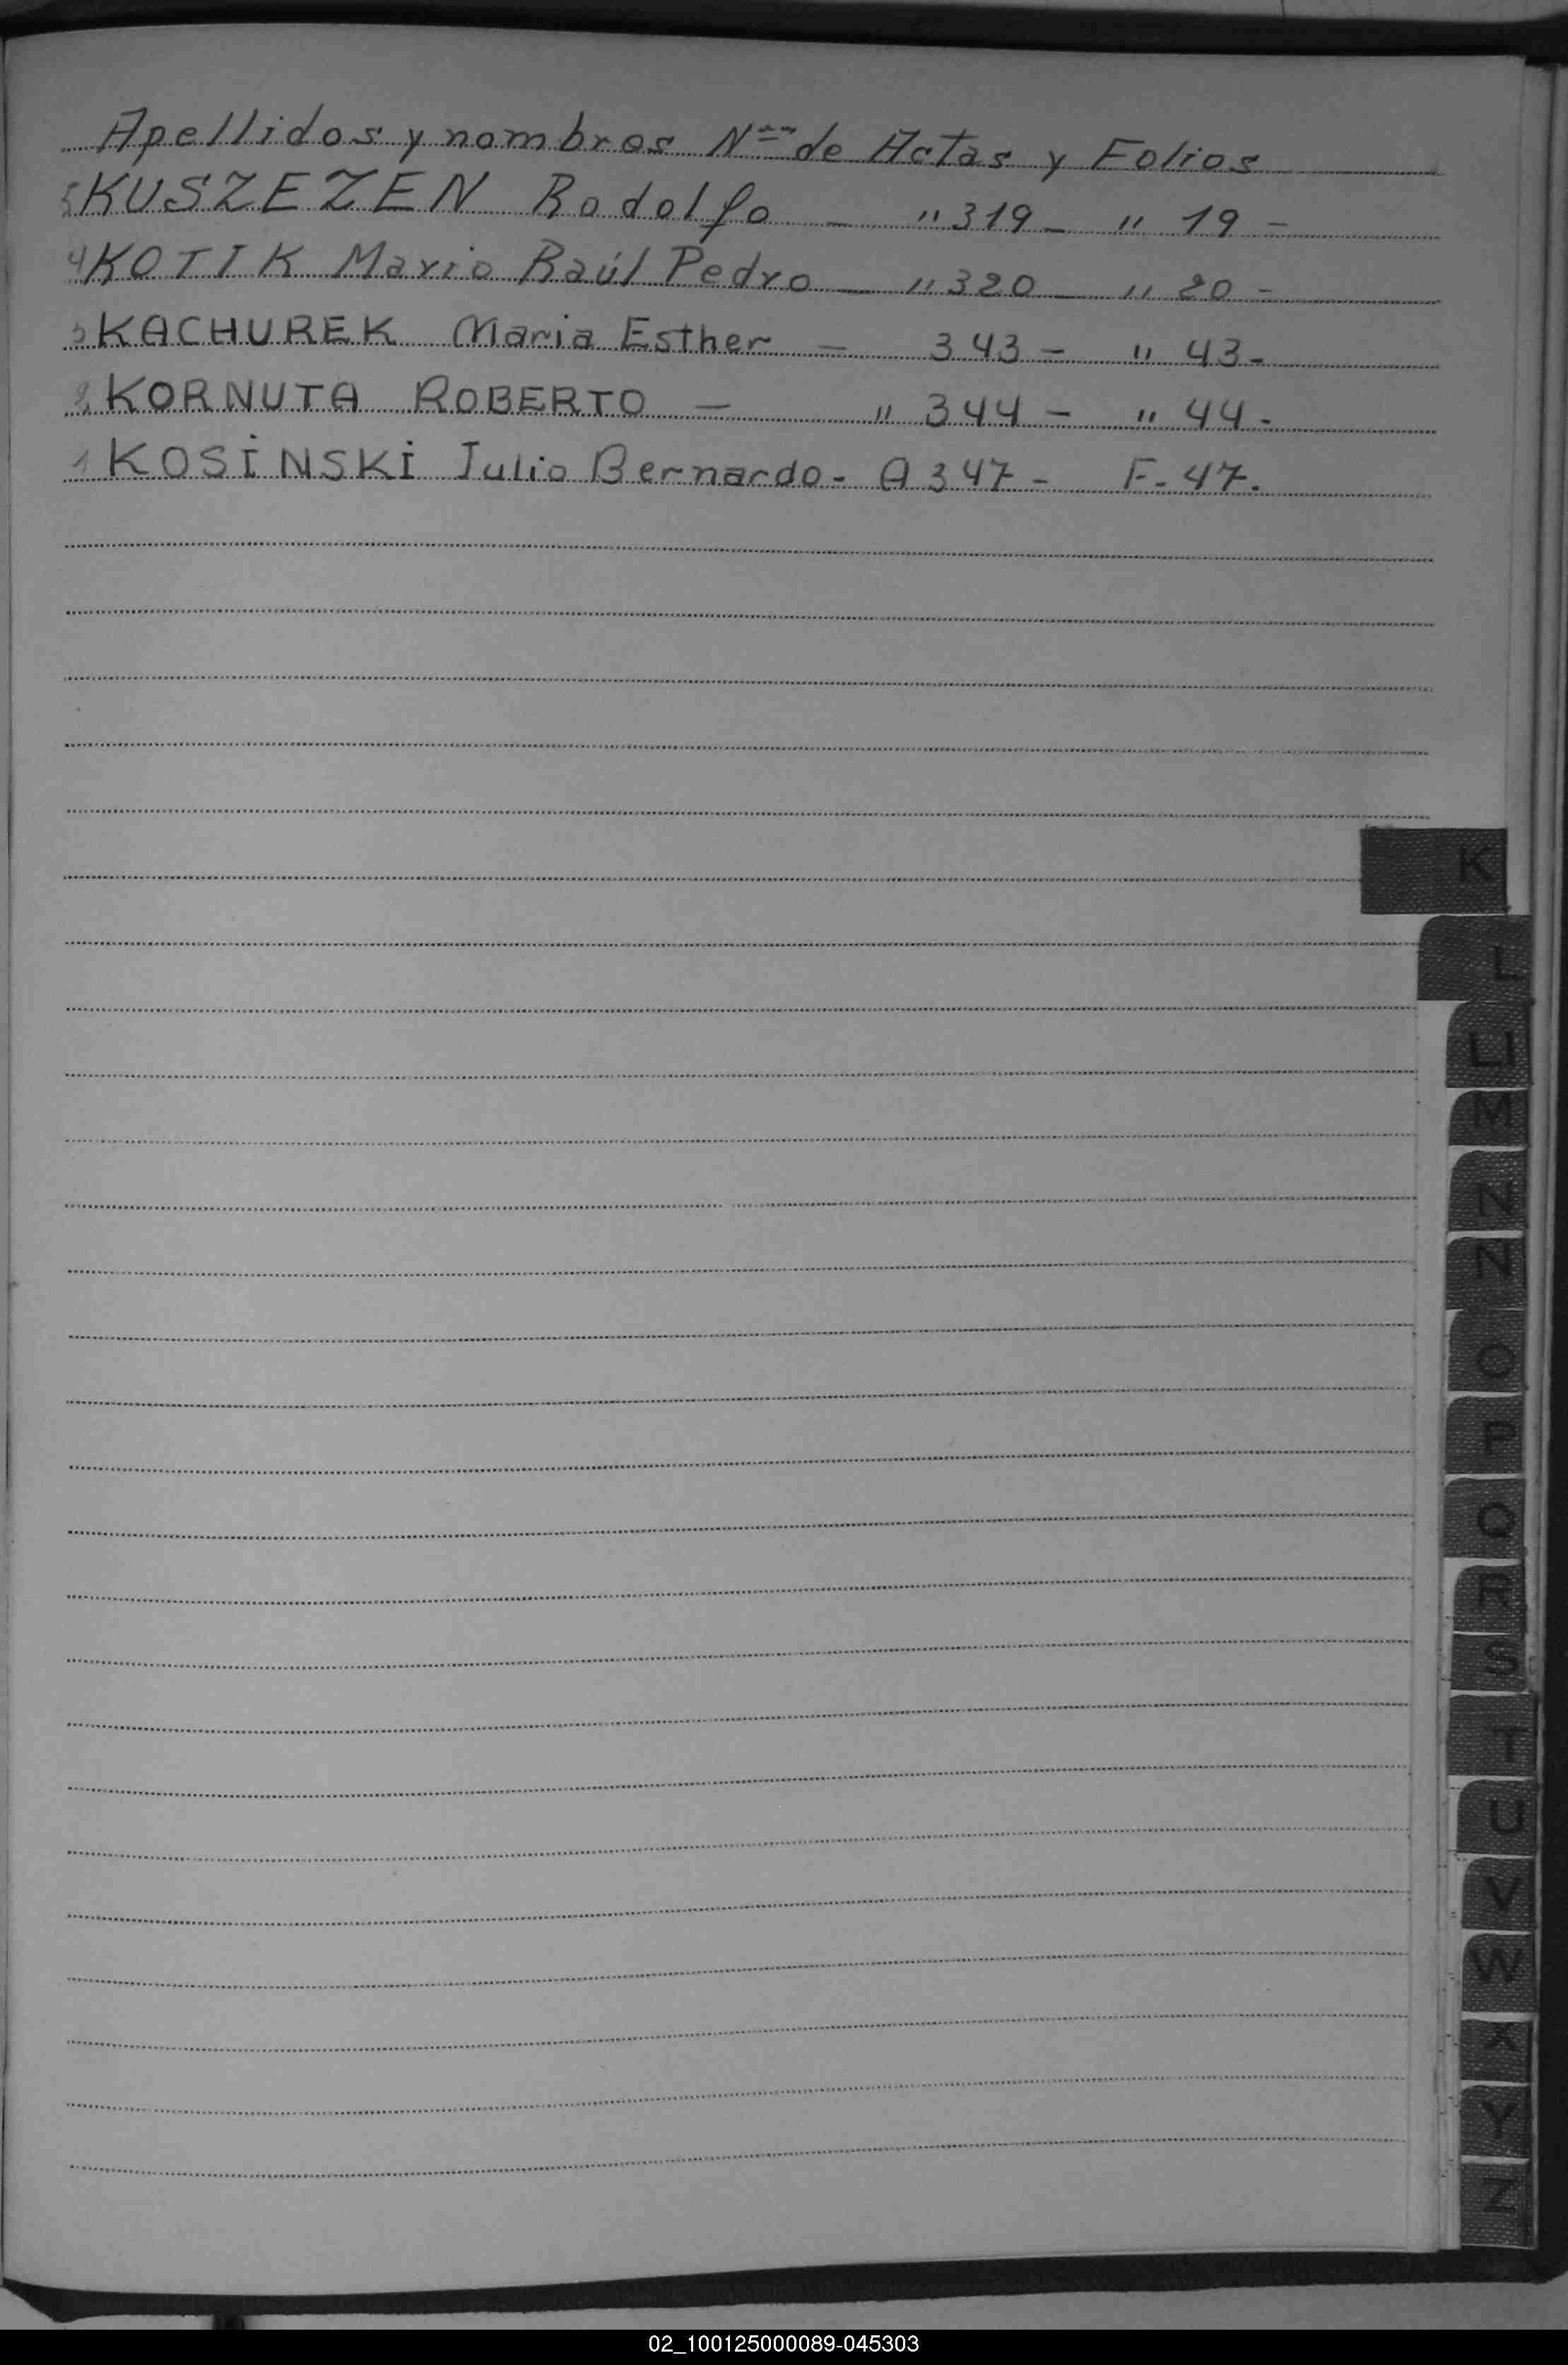 Apellidos y nombres Nros de Actas y Folios
KUSZEZEN Rodolfo — " 319 — " 19 -
4 KOTIK Mario Raúl Pedro — " 320 — " 20 -
KACHUREK Maria Esther — 343 - " 43-
KORNUTA ROBERTO — " 344 - " 44-
1 KOSINSKI Julio Bernardo- A 347 - F. 47.
K
L
LL
M
N
Ñ
O
P
Q
R
S
T
U
V
W
X
Y
Z
02_100125000089-045303